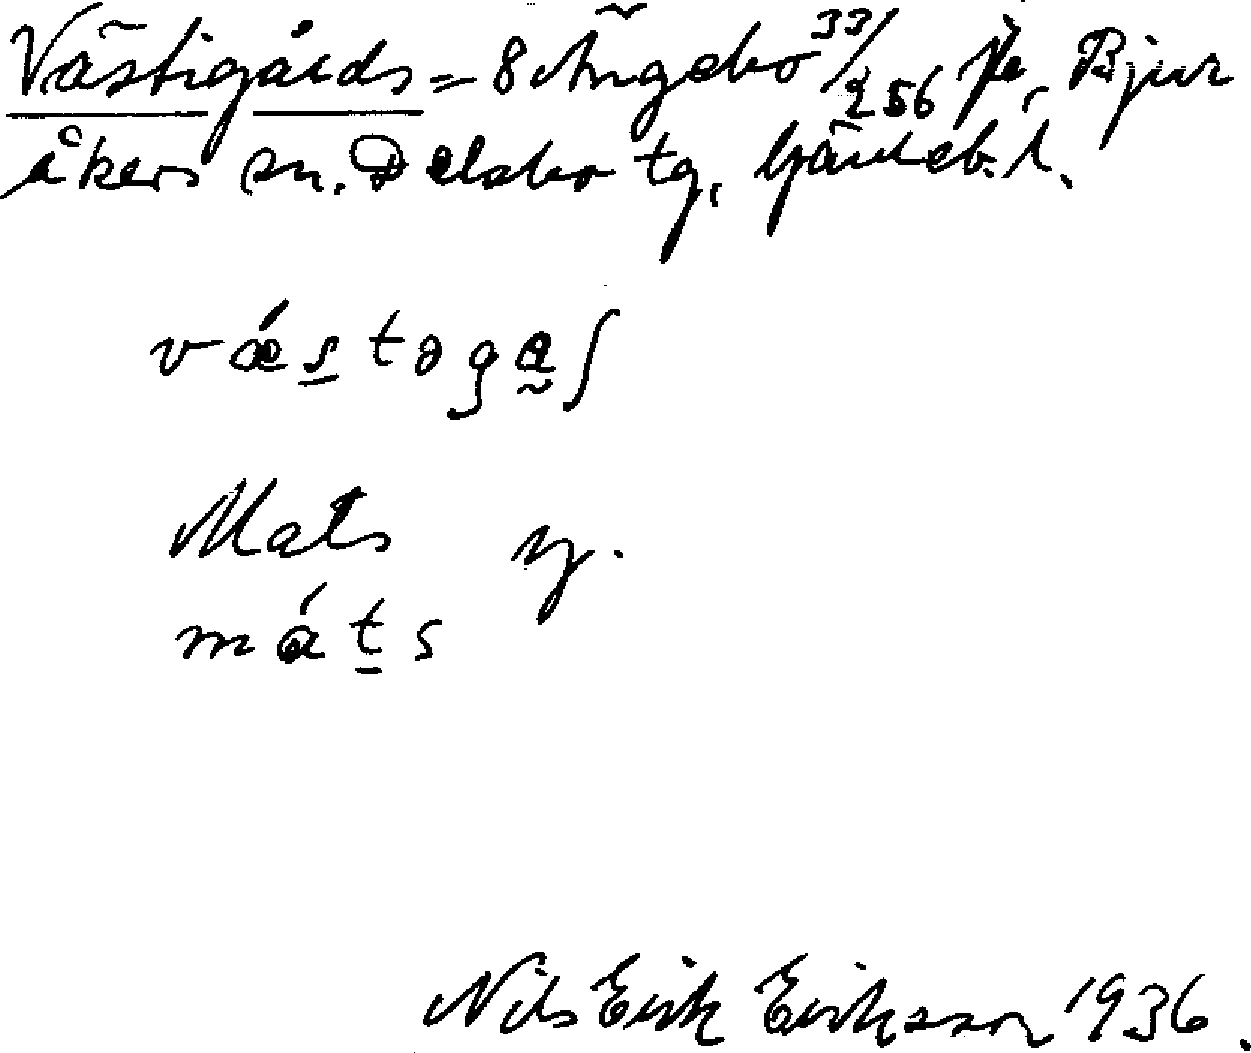 Västigårds = 8 Ängebo 33/256 Bjur
åkers sn. Delsbo tg, Gävleb. l.
vǽstəgaʃ
Mats
máts
Nils Erik Eriksson 1936.